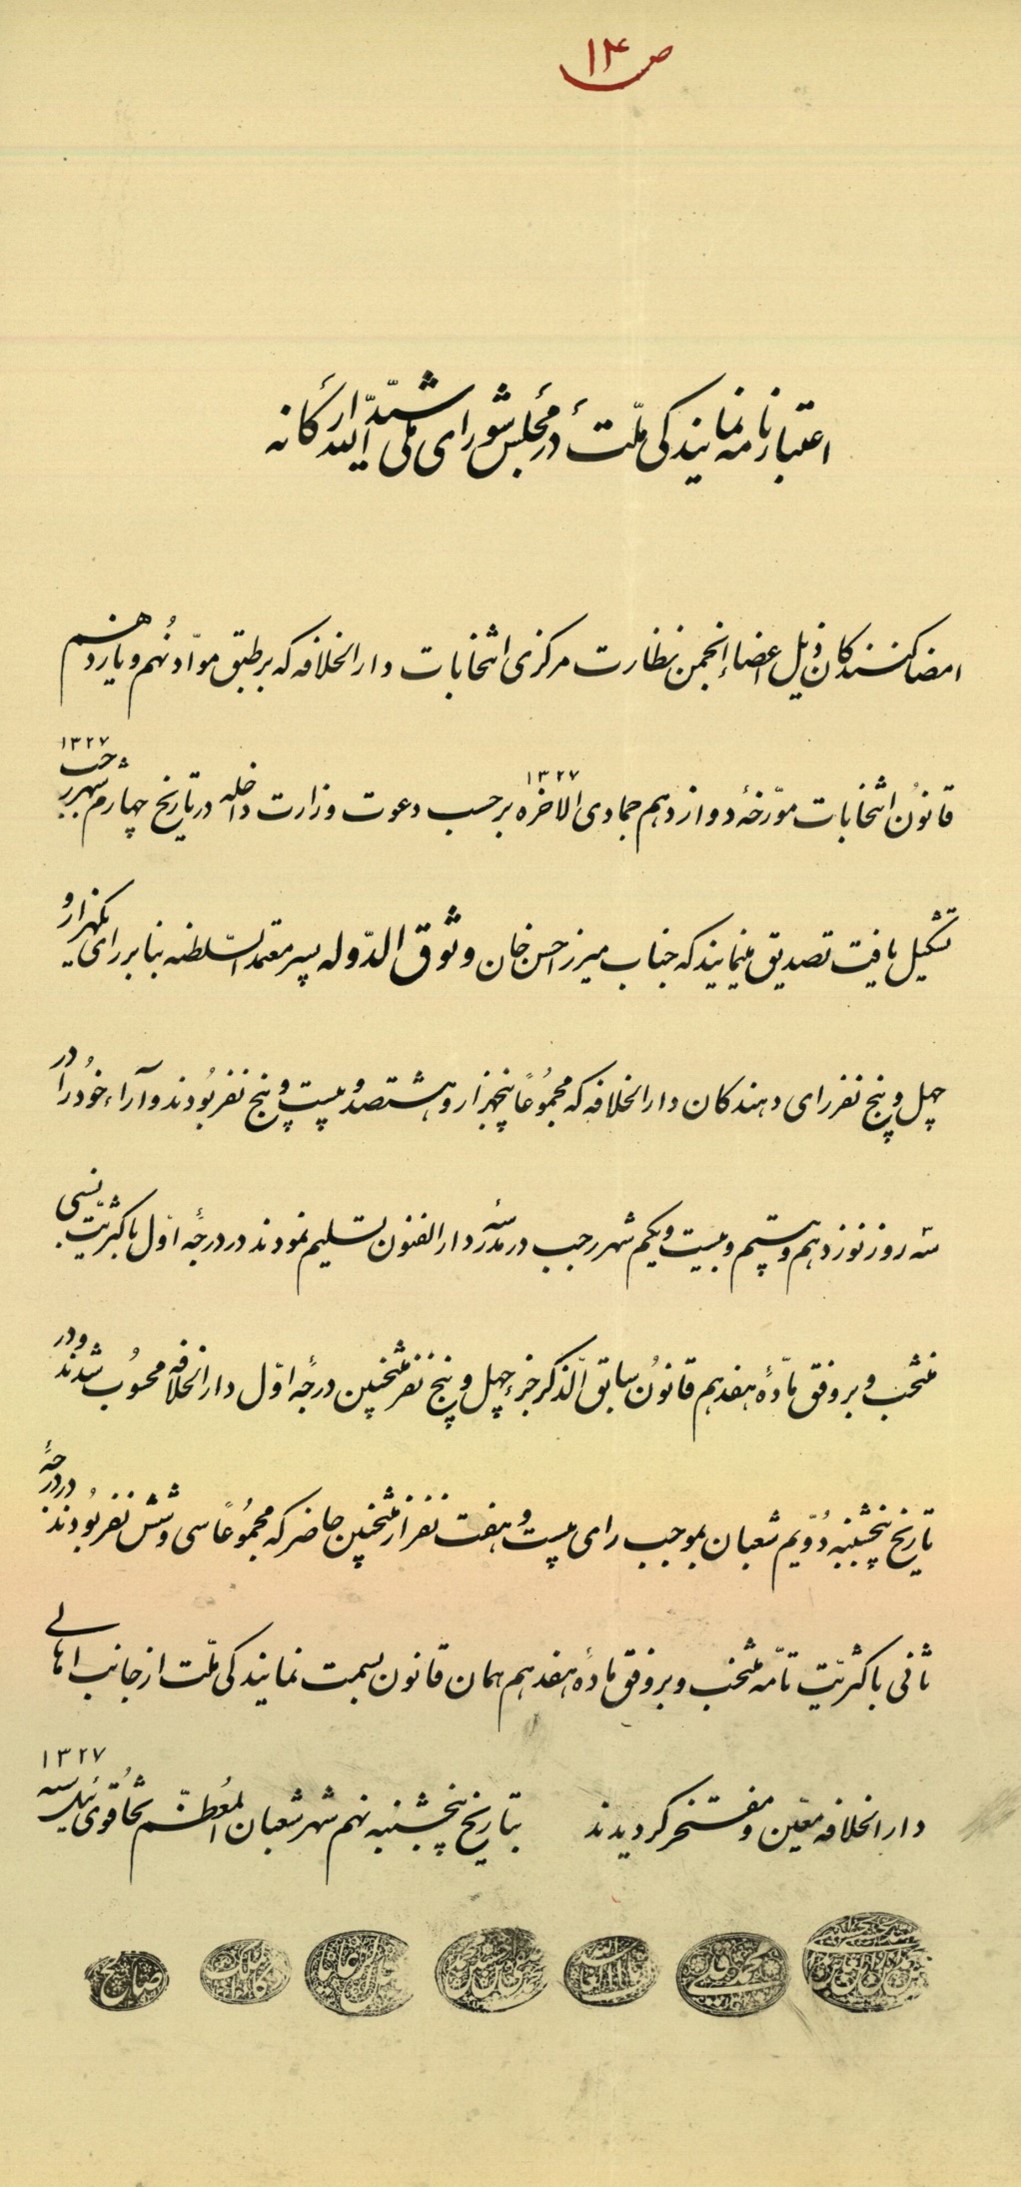 ص ۱۴
اعتبارنامه نمایندگی ملّت در مجلس شورای ملی شیّد الله ارکانه
امضا کنندگان ذیل اعضاء انجمن نظارت مرکزی انتخابات دارالخلافه که بر طبق موادّ نُهم و یازدهم
قانون انتخابات مورّخهٔ دوازدهم جمادی الاخره ۱۳۲۷ برحسب دعوت وزارت داخله در تاریخ چهارم شهر رجب ۱۳۲۷
تشکیل یافت تصدیق مینمایند که جناب میرزا حسن خان وثوق الدّوله پسر معتمد السّلطنه بنا بر رای یکهزار و
چهل و پنج نفر رای دهندگان دارالخلافه که مجموعاً پنجهزار و هشتصد و بیست و پنج نفر بودند و آراء خود را در
سه روز نوزدهم و بیستم و بیست و یکم شهر رجب در مدرسهٔ دارالفنون تسلیم نمودند در درجهٔ اوّل باکثریّت نسبی
منتخب و بر وفق مادّهٔ هفدهم قانون سابق الذّکر جزء چهل و پنج نفر منتخبین درجهٔ اوّل دارالخلافه محسوب شدند و در
تاریخ پنجشنبه دُوّیم شعبان بموجب رای بیست و هفت نفر از منتخبین حاضر که مجموعاً سی و شش نفر بودند در درجهٔ
ثانی باکثریّت تامّه منتخب و بر وفق مادهٔ هفدهم همان قانون بسمت نمایندگی ملّت از جانب اهالی
دارالخلافه معیّن و مفتخر گردیدند بتاریخ پنجشنبه نهم شهر شعبان المُعظّم تخاقوی ئیل سنه ۱۳۲۷